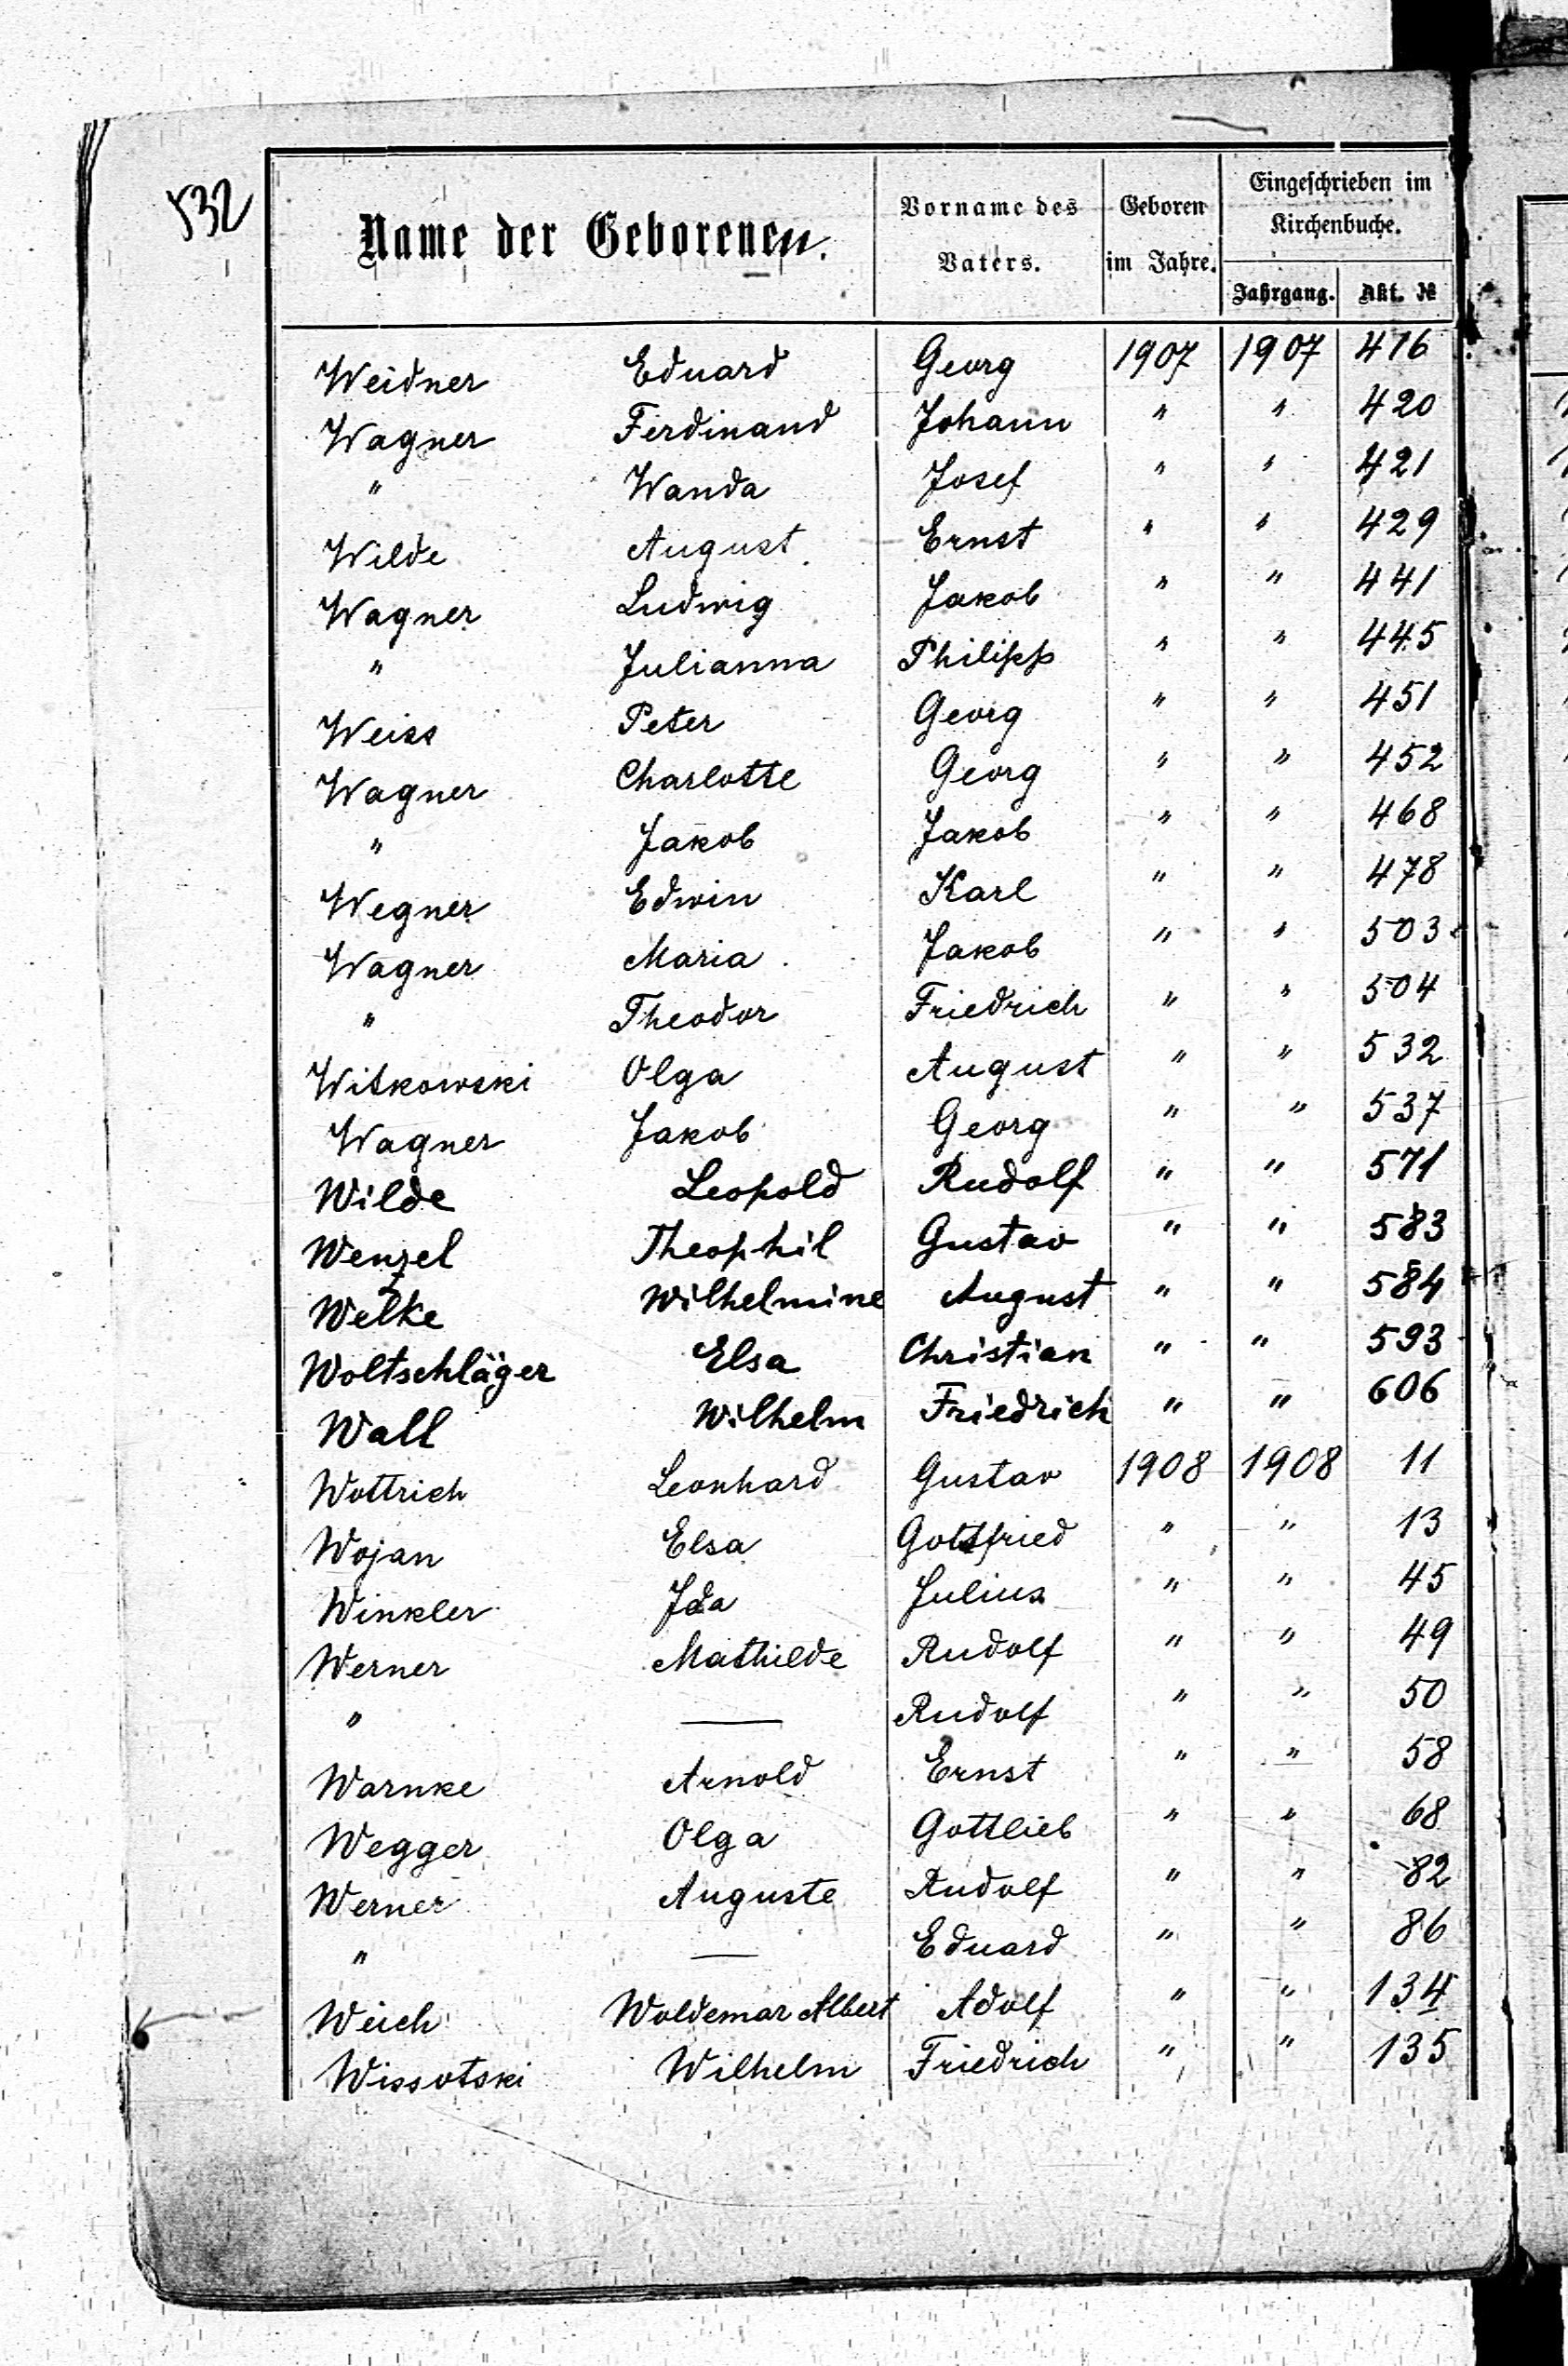 532
Name der Geborenen.
Vorname des Vaters.
Geboren im Jahre.
Eingeschrieben im Kirchenbuche.
Jahrgang. Akt. №
Weidner Eduard Georg 1907 1907 416
Wagner Ferdinand Johann " " 420
" Wanda Josef " " 421
Wilde August Ernst " " 429
Wagner Ludwig Jakob " " 441
" Julianna Philipp " " 445
Weiss Peter Georg " " 451
Wagner Charlotte Georg " " 452
" Jakob Jakob " " 468
Wegner Edwin Karl " " 478
Wagner Maria Jakob " " 503
" Theodor Friedrich " " 504
Witkowski Olga August " " 532
Wagner Jakob Georg " " 537
Wilde Leopold Rudolf " " 571
Wenzel Theophil Gustav " " 583
Welke Wilhelmine August " " 584
Woltschläger Elsa Christian " " 593
Wall Wilhelm Friedrich " " 606
Wottrich Leonhard Gustav 1908 1908 11
Wojan Elsa Gottfried " " 13
Winkler Ida Julius " " 45
Werner Mathilde Rudolf " " 49
" — Rudolf " " 50
Warnke Arnold Ernst " " 58
Wegger Olga Gottlieb " " 68
Werner Auguste Rudolf " " 82
" — Eduard " " 86
Weich Woldemar Albert Adolf " " 134
Wissotski Wilhelm Friedrich " " 135